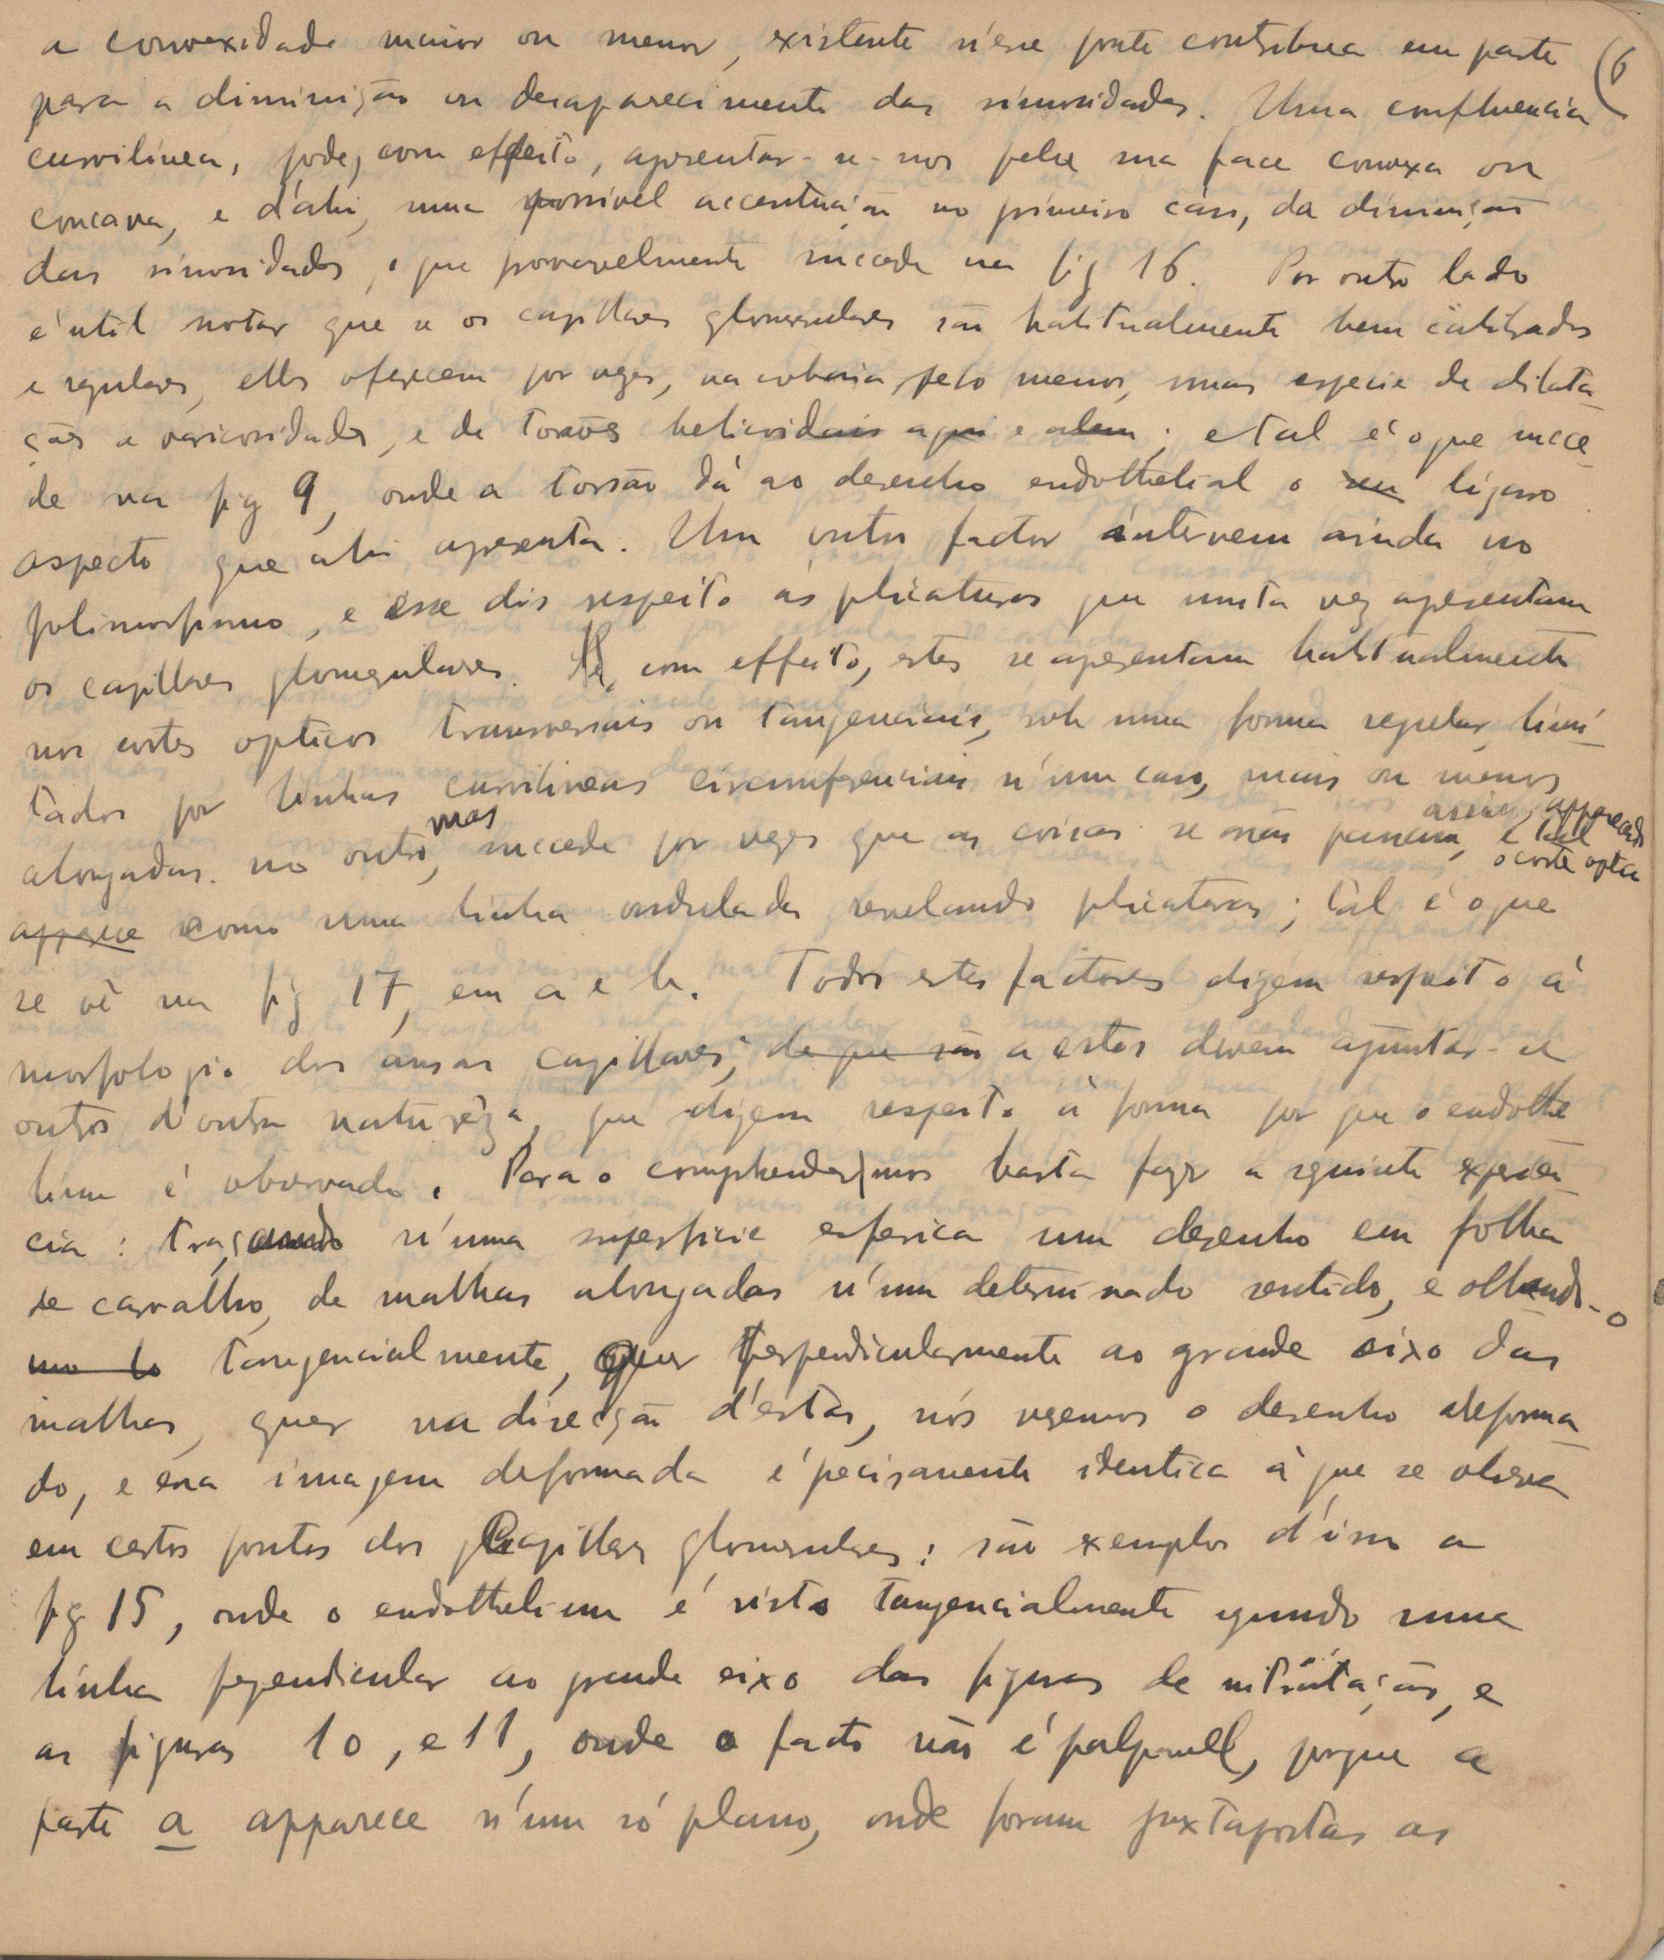 a convexidade maior ou menor, existente n'esse ponto contribua em parte (6
para a diminuição ou desaparecimento das sinuosidades. Uma confluencia
curvilinea, pode, com effeito, apresentar-se-nos pela sua face convexa ou
concava, e d'ahi, uma possivel accentuação no primeiro caso, da diminuição
das sinuosidades, o que provavelmente succede na fig 16. Por outro lado
é util notar que se os capillares glomerulares são habitualmente bem calibrados
e regulares, elles oferecem por vezes, na cobaia pelo menos, umas especie de dilata-
ções e varicosidades, e de torsões helicoidais aqui e alem; e tal é o que succe-
de na fig 9, onde a torsão dá ao desenho endothelial o seu ligeiro
aspecto que ahi apresenta. Um outro factor intervem ainda no
polimorfismo, e esse diz respeito ás plicaturas que muita vez apresentam
os capillares glomerulares. Se, com effeito, estes se apresentam habitualmente
nos cortes opticos transversais ou tangenciais, sob uma forma regular, limi-
tados por linhas curvilineas circumferenciais n'um caso, mais ou menos
alongadas no outro, mas succede por vezes que as coisas se não passem assim, e tal apparecendo o corte optico
apparece como uma linha ondulada revelando plicaturas; tal é o que
se vê na fig 17, em a e b. Todos estes factores dizem respeito á
morfologia das ansas capillares; de que são a estes devem ajuntar-se
outros d'outra natureza, que dizem respeito á forma por que o endothe-
lium é observado. Para o comprehendermos basta fazer a seguinte experien-
cia: traçando n'uma superficie esferica um desenho em folha
de carvalho, de malhas alongadas n'um determinado sentido, e olhando-o
tangencialmente, quer perpendicularmente ao grande eixo das
malhas, quer na direcção d'estas, nós vemos o desenho deforma-
do, e essa imagem deformada é precisamente identica á que se observa
em certos pontos dos capillares glomerulares: são exemplos d'isso a
fig 15, onde o endothelium é visto tangencialmente segundo uma
linha perpendicular ao grande eixo das figuras de nitratação, e
as figuras 10, e 11, onde o facto não é palpavel, porque a
parte a apparece n'um só plano, onde foram juxtapostas as